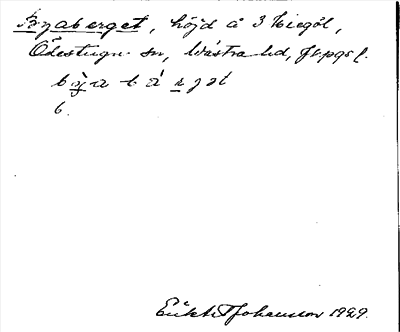 Byaberget, höjd å 3 Liegöl,
Ödestugu sn, Västra hd, Jkpgs l.
b y̠ a b ä́ r̠ j ə t
6.
Erikh Johansson 1929.